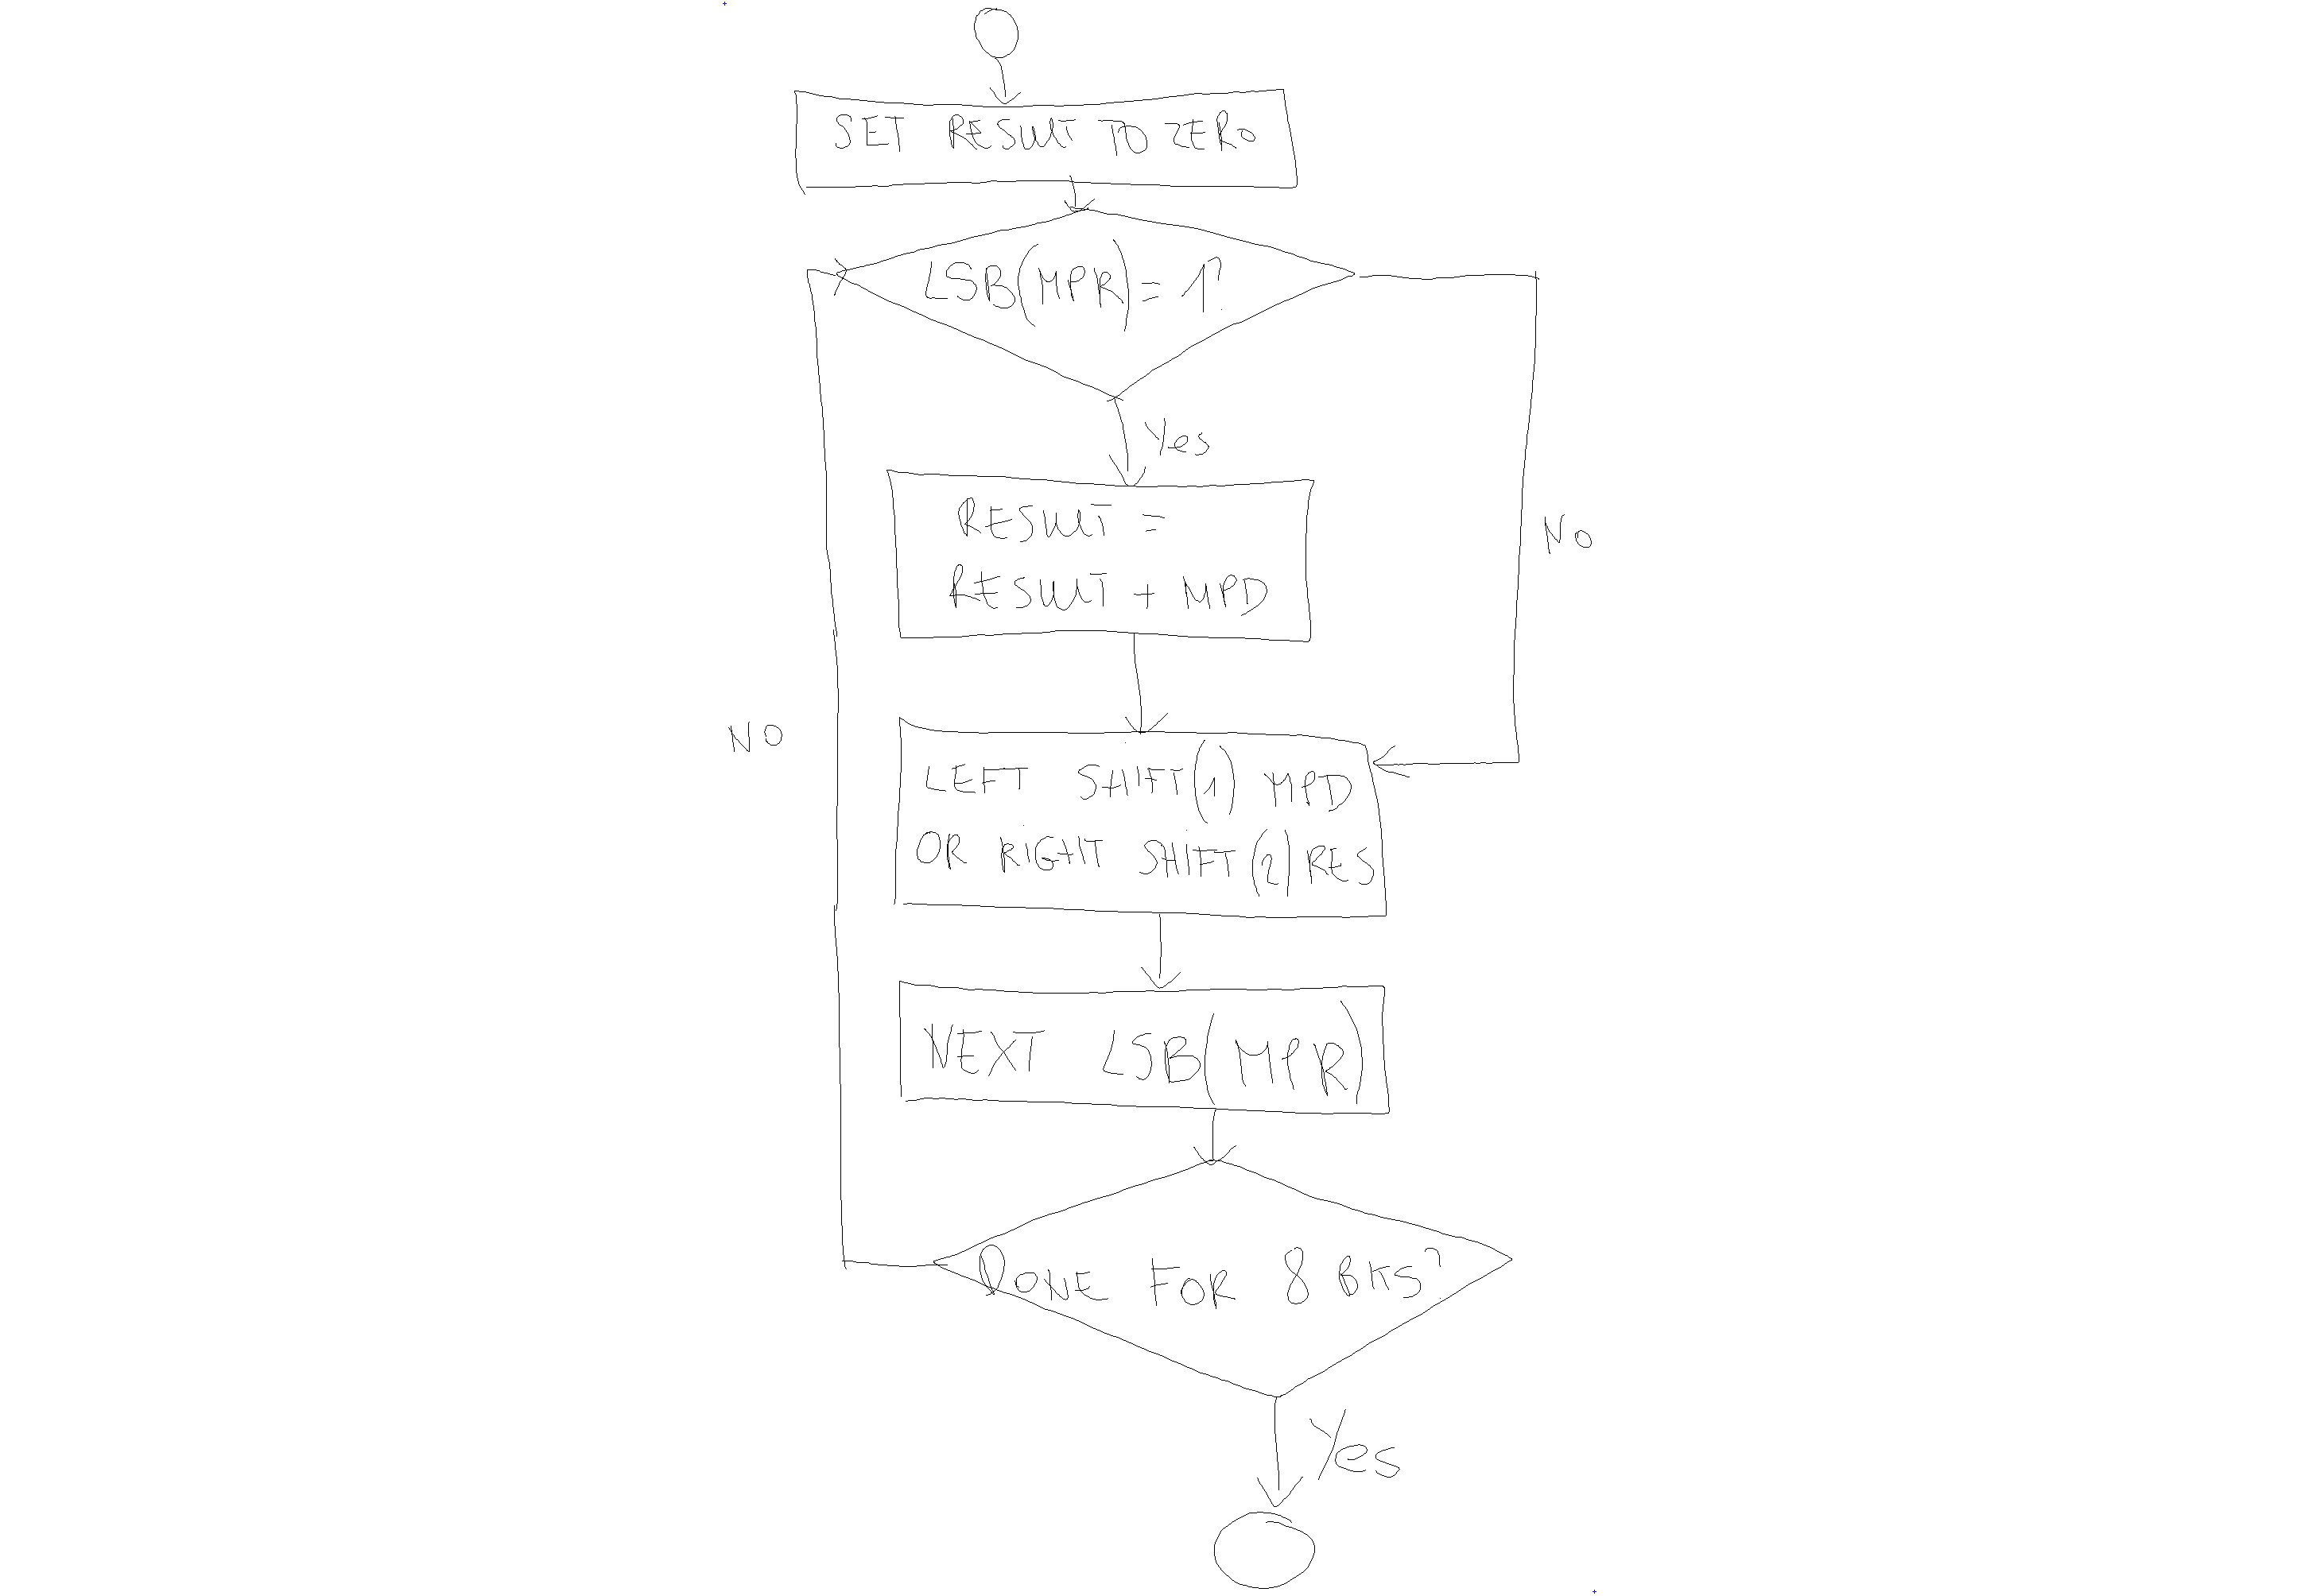 SET RESULT TO ZERO
LSB(MPR) = 1?
Yes
RESULT =
RESULT + MPD
NO
NO
LEFT SHIFT(1) MPD
OR RIGHT SHIFT(2) RES
NEXT LSB(MPR)
DONE FOR 8 BITS?
Yes